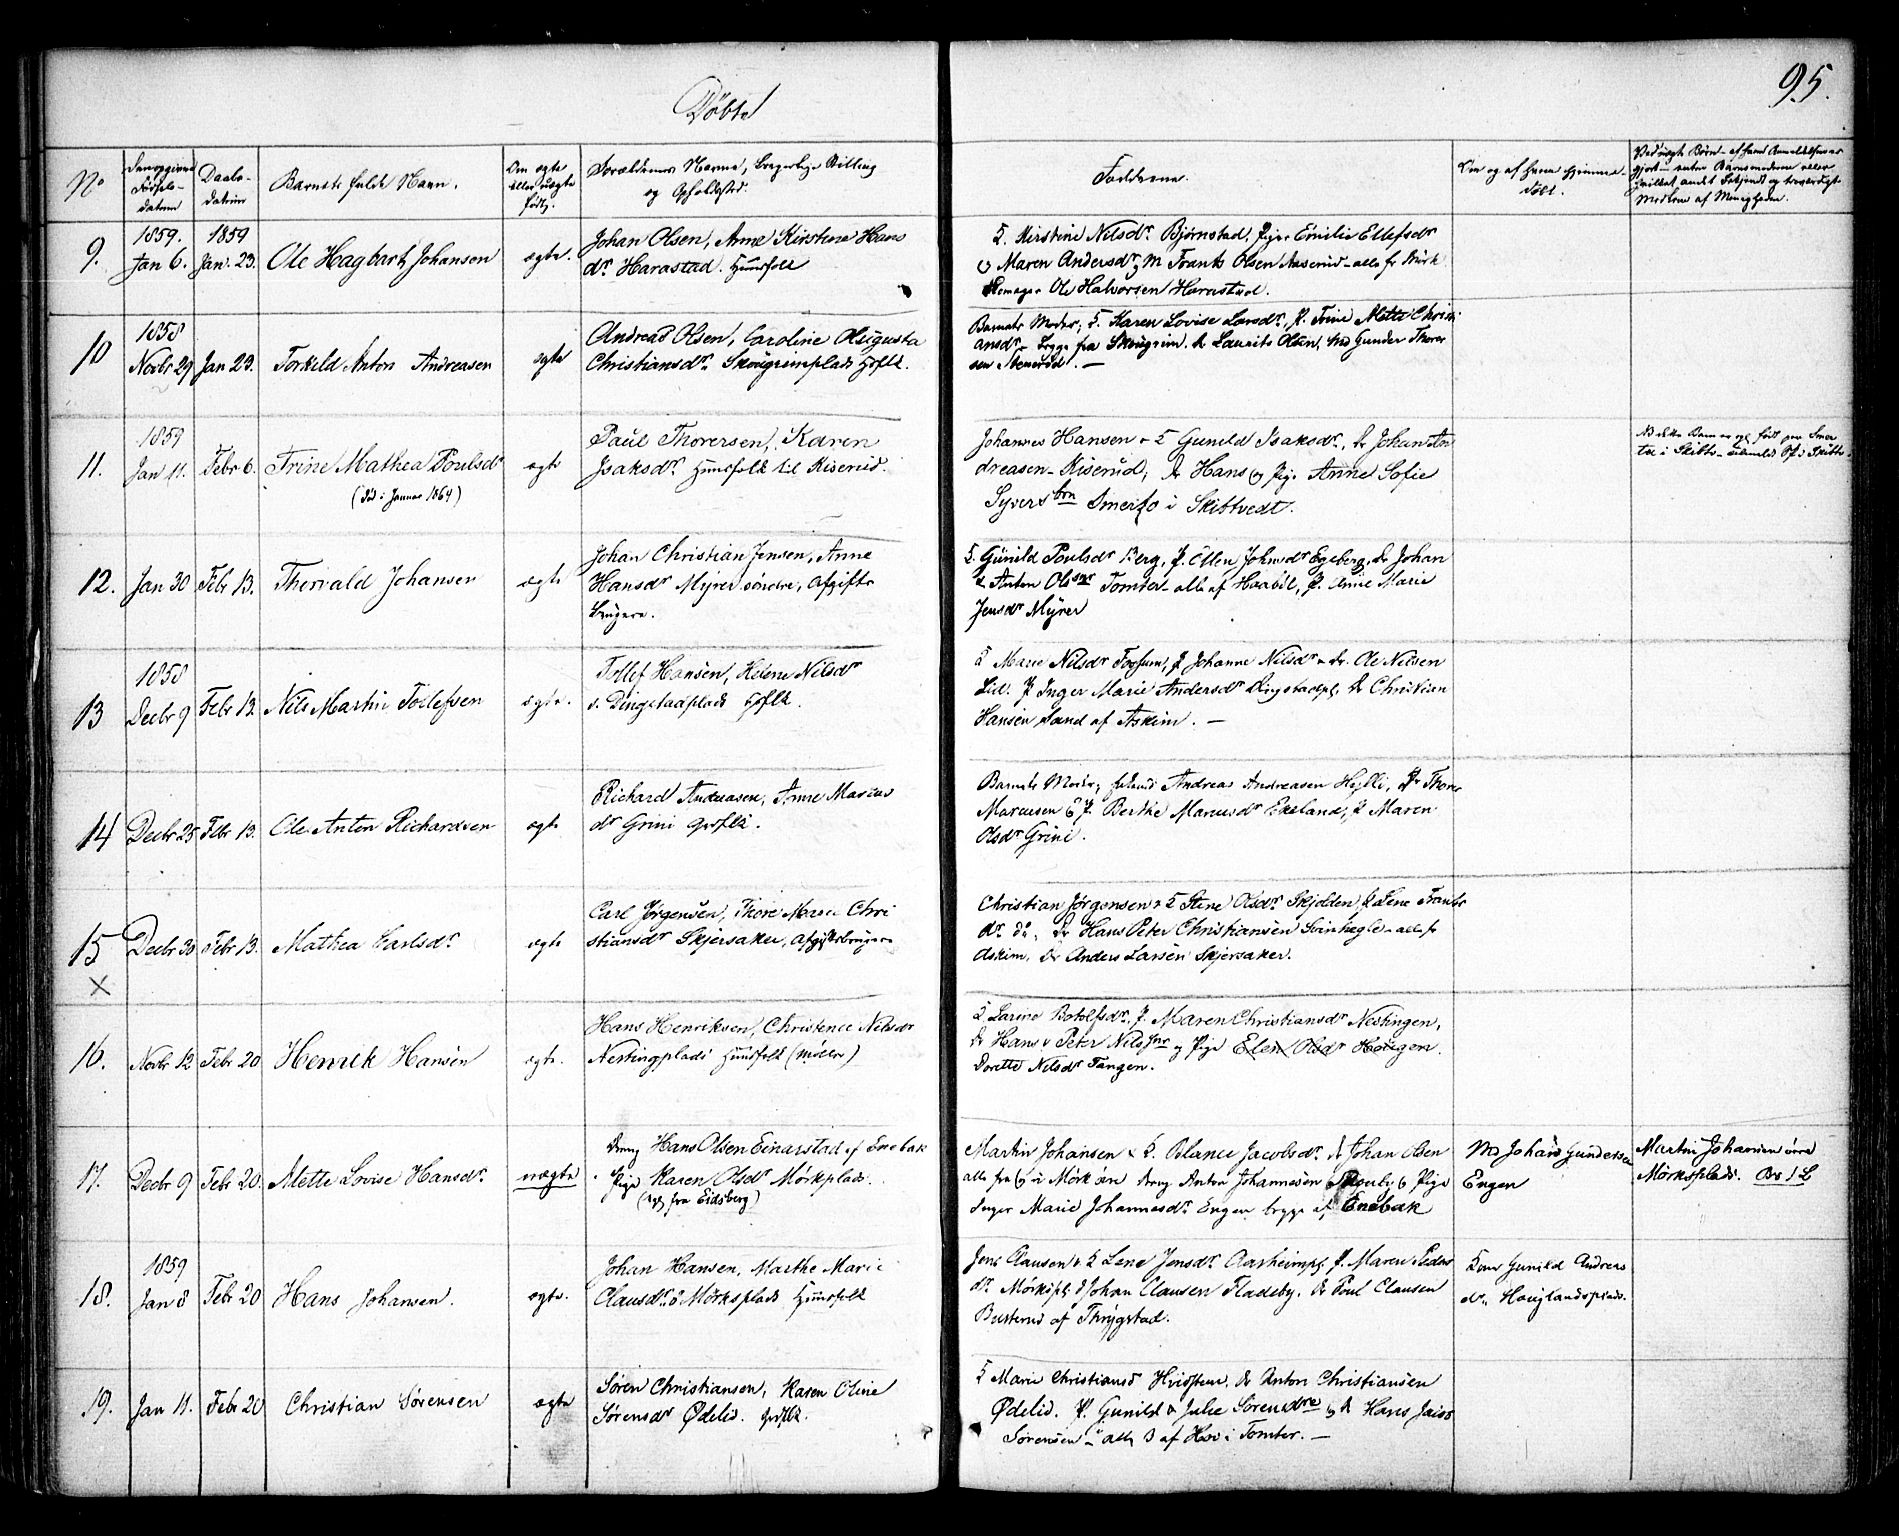 95.
Døbte
No
Den opgivne Fødsels-datum
Daabs-datum
Barnets fulde Navn.
Om ægte eller uægte født.
Forældrenes Navne, borgerlige Stilling og Opholdssted.
Fadderne.
Om og af hvem hjemme-døbt.
9.
1859.
Jan 6.
1859
Jan. 23.
Ole Hagbart Johansen
ægte.
Johan Olsen, Anne Kirstine Hans
dr Harastad. Huusfolk
K. Kirstine Nilsdr Bjørnstad, Pige Emilie Ellefsdr
og Maren Andersdr, M Frants Olsen Aaserud - alle fr
Ole Halvorsen Harastad.
10
1858
Novbr 29
Jan 23.
Torkild Anton Andreasen
ægte
Andreas Olsen, Caroline Augusta
Christiansdr Skougrimplads Hsflk.
Barnets Moder, K. Karen Lovise Larsdr, P. Trine Mette Christi
ansdr - begge fra Skougrim. Dr Laurits Olsen, Gunder Thorer
sen Stenerud. -
11.
1859
Jan 11.
Febr 6.
Trine Mathea Poulsdr
(død i Januar 1864)
ægte
Paul Thorersen, Karen
Isaksdr Huusfolk til Kiserud.
Johannes Hansen & K Gunild Isaksdr, Dr Johan An
dreasen - Kiserud, Dr Hans og Pige Anne Sofie
Syversbrn Smerto i Skibtvedt.
12.
Jan 30
Febr 13.
Thorvald Johansen
ægte
Johan Christian Jensen, Anne
Hansdr Myrer søndre, Afgifts
brugere.
K. Gunild Poulsdr Berg, P. Ellen Johnsdr Egeberg, Dr Johan
& Anton Olsnr Tomter - alle af Haabøl, P. Anne Marie
Jensdr Myrer
13
1858
Decbr 9
Febr 13.
Nils Martin Tollefsen
ægte.
Tollef Hansen, Helene Nilsdr
v. Dingstadplads Hsflk.
K Marie Nilsdr Fossum, P Johanne Nilsdr & Dr. Ole Nilsen
Lid. P Inger Marie Andersdr Dingstadpl, Dr Christian
Hansen Sand af Askim. -
14
Decbr 25
Febr 13.
Ole Anton Richardsen
ægte
Richard Andreasen, Anne Marcus
dr Grini Hsflk.
Barnets Moder, Andreas Andreasen Hølli, Dr Thore
Marcusen & P Berthe Marcusdr Ekeland, P Maren
Olsdr Grini.
15
×
Decbr 30
Febr 13.
Mathea Carlsdr
ægte
Carl Jørgensen, Thore Marie Chri
stiansdr Skjersaker, Afgiftsbrugere
Christian Jørgensen & K Stine Olsdr Skjolden, P Lene Frants
dr do, Dr Hans Peter Christiansen - alle fr
Askim, Dr Anders Larsen Skjersaker.
16.
Novbr 12
Febr 20
Henrik Hansen
ægte.
Hans Henriksen, Christence Nilsdr
Nestingplads Huusfolk (Møller)
K Larine Botolfsdr, P. Maren Christiansdr Nestingen,
Dr Hans & Peter Nilssnr og Pige Elen Olsdr Hougen.
Dorette Nilsdr Tangen.
17.
Decbr 9
Febr 20.
Mette Lovise Hansdr
uægte
Dreng Hans Olsen Einarstad af Enebak
Pige Karen Olsdr Mørkplads.
(Byg fra Eidsberg)
Martin Johansen & K. Blance Jacobsdr, Dr Johan Olsen
alle fra Mørk Dreng Anton Johannesen & Pige
Inger Marie Johannesdr Engen begge af Enebak
Md Johan Gundersen
Engen
Martin Johansen øvre
Mørksplads.
18.
1859
Jan 8
Febr 20
Hans Johansen.
ægte.
Johan Hansen, Marthe Marie
Clausdr Mørksplads Huusfolk
Jens Clausen & K Lene Jensdr Aasheimpl, P. Maren Peders
dr Mørkspl, Johan Clausen Fladeby, Dr Poul Clausen
Busterud af Thrygstad.
Kone Gunild Andreas
dr Houglandsplads.
19.
Jan 11.
Febr 20
Christian Sørensen
ægte
Søren Christiansen, Karen Oline
Sørensdr Ødelid. Hsflk.
K Marie Christiansd Hvidsteen, Dr Anton Christiansen
Ødelid. P. Gunild & Julie Sørensdre og Dr Hans
Sørensen - alle 3 af Hov i Tomter. -